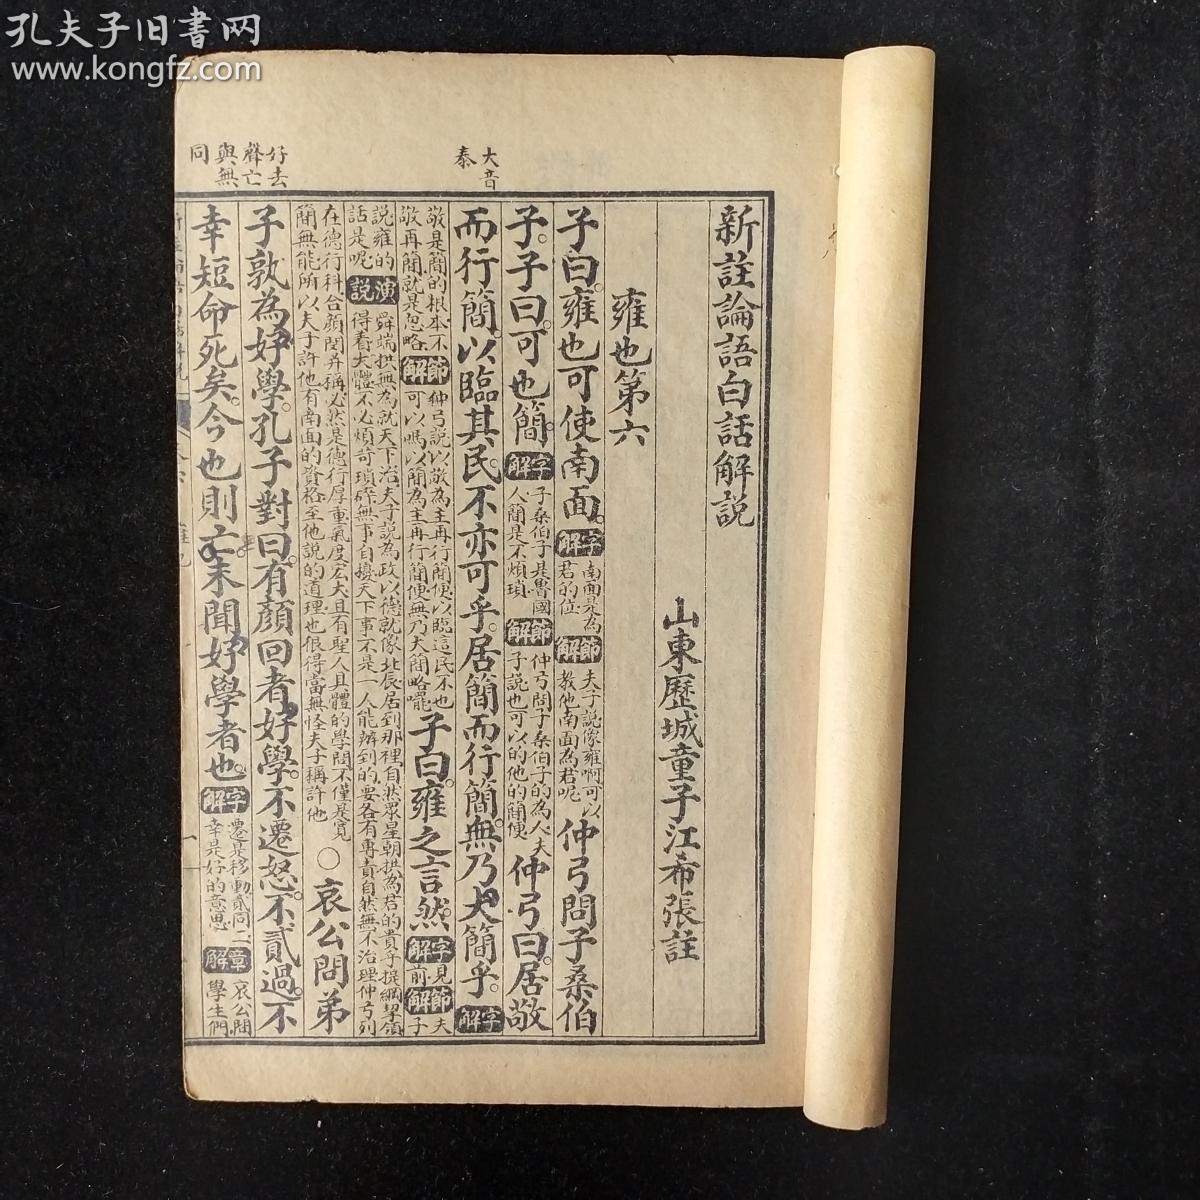 孔夫子旧书网
www.kongfz.com
大音
泰
好去
聲亡
與無
同
新註論語白話解説
山東歷城童子江希張註
雍也第六
子曰雍也可使南面。字解南面是為君的位節解夫子說像雍啊可以教他南面為君呢仲弓問子桑伯
子。子曰。可也簡。字解子桑伯子是魯國人簡是不煩瑣節解仲弓問子桑伯子的為人夫子說也可以的他的簡便仲弓曰。居敬
而行簡。以臨其民。不亦可乎。居簡而行簡。無乃大簡乎。字解
敬是簡的根本不敬再簡就是忽略節解仲弓說以敬為主再行簡便以臨這民不也可以嗎以簡為主再行簡便無乃大簡略囉子曰。雍之言然。字解見前節解夫子
說雍的話是呢演説舜端拱無為就天下治夫子說為政以德就像北辰居到那裡自然眾星朝拱為君的貴乎提綱挈領得着大體不必煩苛瑣碎無事自擾天下事不是一人能辨到的要各有專責自然無不治理仲弓列
在德行科合顏閔并稱必然是德行厚重氣度宏大且有聖人具體的學問不僅是寬簡無能所以夫子許他有南面的資格至他說的道理也很得當無怪夫子稱許他○哀公問弟
子孰為好學。孔子對曰。有顏回者好學。不遷怒。不貳過。不
幸短命死矣。今也則亡。未聞好學者也。字解遷是移動貳同二幸是好的意思章解哀公問學生們